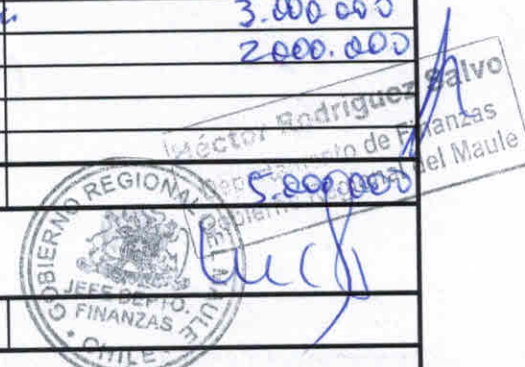 3.000.000
2.000.000
Héctor Rodriguez Salvo
Departamento de Finanzas
Gobierno Regional del Maule
5.000.000
GOBIERNO REGIONAL DEL MAULE
JEFE DEPTO.
FINANZAS
* CHILE *